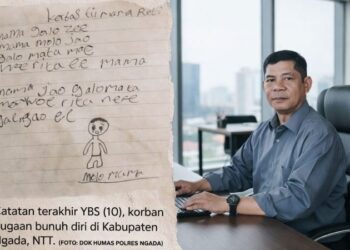 katas tii mama Reti
mama galo zee
mama molo Jao
galo mata mae
rita ee mama
mama Jao galo mata
rita nee
molo mama
Catatan terakhir YBS (10), korban
ugaan bunuh diri di Kabupaten
gada, NTT. (FOTO: DOK HUMAS POLRES NGADA)